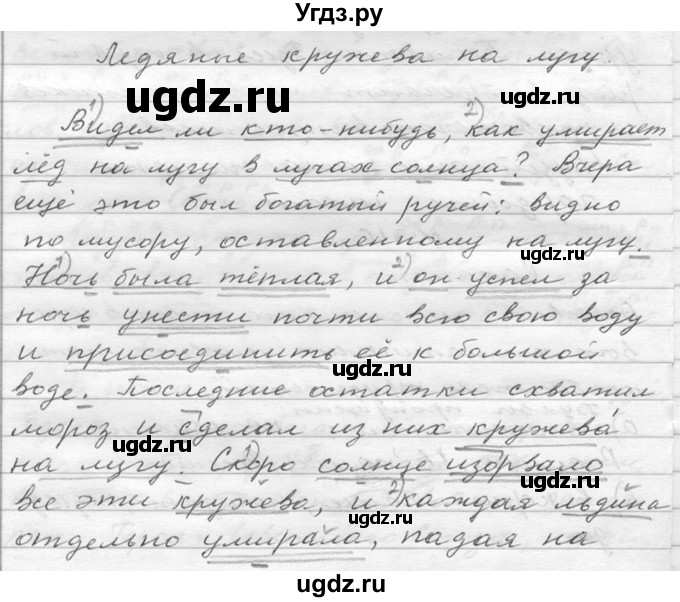 Угдз.ру
Ледяные кружева на лугу.
ugdz.ru ugdz.ru
1) 2)
Видел ли кто-нибудь, как умирает
лёд на лугу в лучах солнца? Вчера
ещё это был богатый ручей: видно
по мусору, оставленному на лугу.
1) 2)
Ночь была тёплая, и он успел за
ночь унести почти всю свою воду
и присоединить её к большой
ugdz.ru
воде. Последние остатки схватил
мороз и сделал из них кружева
ugdz.ru
на лугу. Скоро 1) солнце изорвало
ugdz.ru
все эти кружева, и 2) каждая льдина
ugdz.ru
отдельно умирала, падая на
ugdz.ru